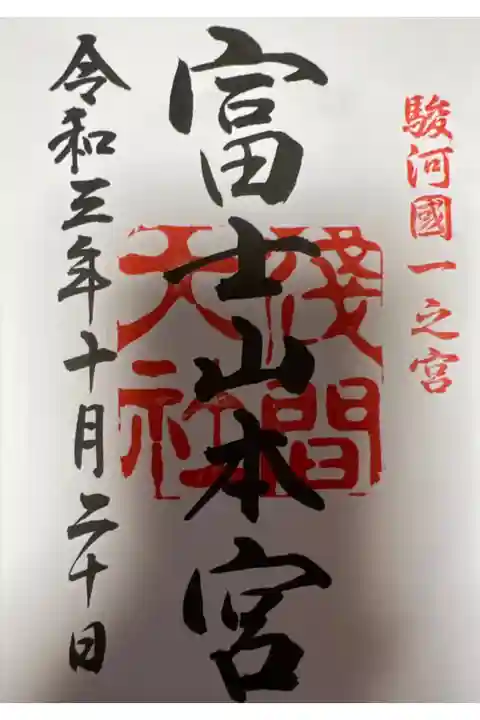 駿河國一之宮
富士山本宮
淺間
大社
令和三年十月二十日